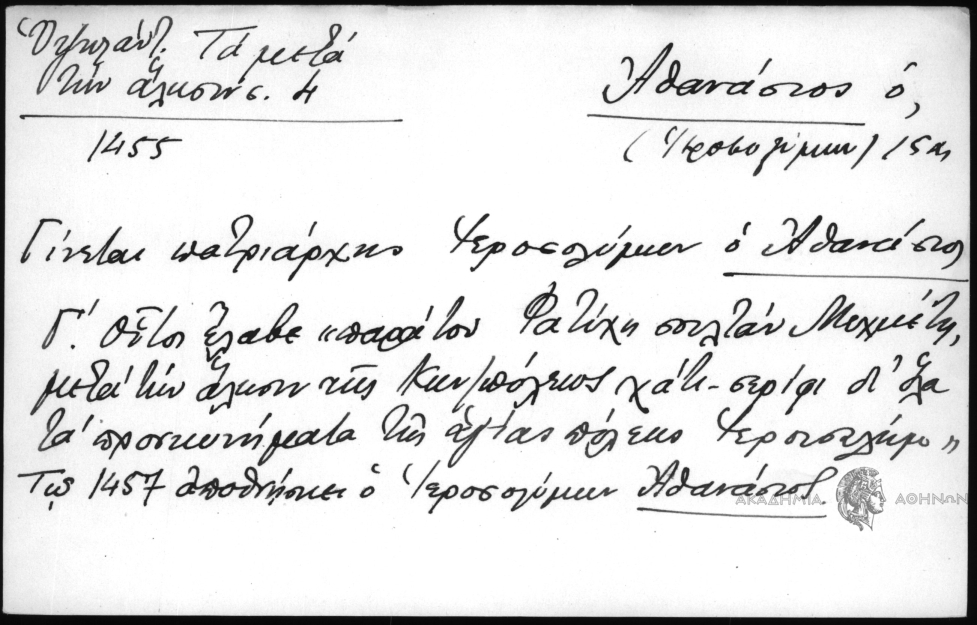 Τά μετά
τήν ἅλωσιν σ. 4
1455
Ἀθανάσιος ὁ,
(Ἱεροσολύμων) 15 αι
Γίνεται πατριάρχης Ἱεροσολύμων ὁ Ἀθανάσιος
Γ'. Οὗτος ἔλαβε «παρά τοῦ Φατίχη σουλτάν Μεχμέτη,
μετά τήν ἅλωσιν τῆς Κων/πόλεως χάτι-σερίφι δι' ὅλα
τά προσκυνήματα τῆς ἁγίας πόλεως Ἱερουσαλήμ»
Τῷ 1457 ἀποθνήσκει ὁ Ἱεροσολύμων Ἀθανάσιος
ΑΚΑΔΗΜΙΑ ΑΘΗΝΩΝ